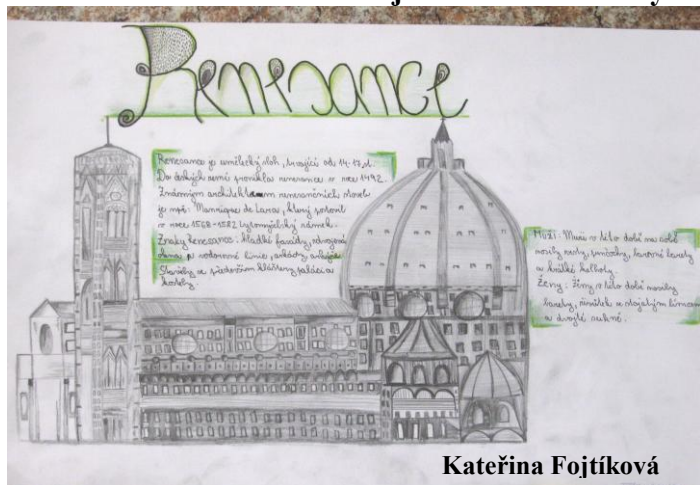 Renesance
Renesance je umělecký sloh, trvající od 14-17.st.
Do českých zemí pronikla renesance v roce 1492.
Známým architektem renesančních staveb
je např. Manrique de Lara, který postavil
v roce 1568-1582 Litomyšlský zámek.
Znaky Renesance: hladké fasády, zdvojená
okna po vodorovné linii, arkády,
Stavěly se především kláštery, paláce a
kostely.
Muži: Muži v této době na sobě
nosily vesty, barevné barety
a krátké kalhoty.
Ženy: ženy v této době nosily
barety, živůtek se stojatým límcem
a dvojté sukně.
Kateřina Fojtíková